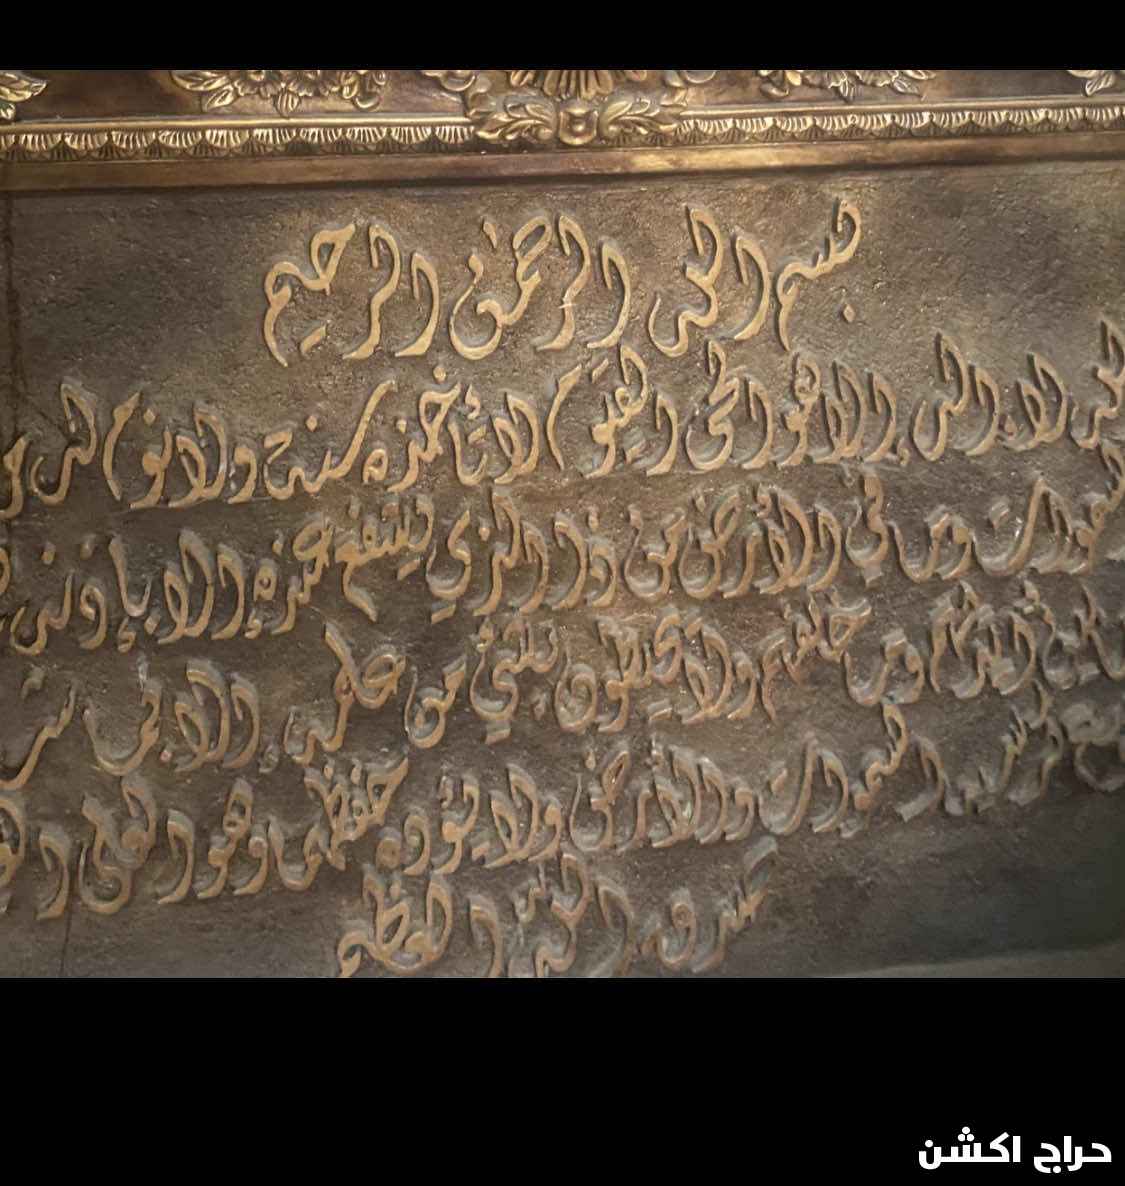 بسم الله الرحمن الرحيم
الله لا إله إلا هو الحي القيوم لا تأخذه سنة ولا نوم له
السموات وما في الأرض من ذا الذي يشفع عنده إلا بإذنه
بين أيديهم وما خلفهم ولا يحيطون بشيء من علمه إلا بما
كرسيه السموات والأرض ولا يئوده حفظهما وهو العلي
صدق الله العظيم
حراج اكشن